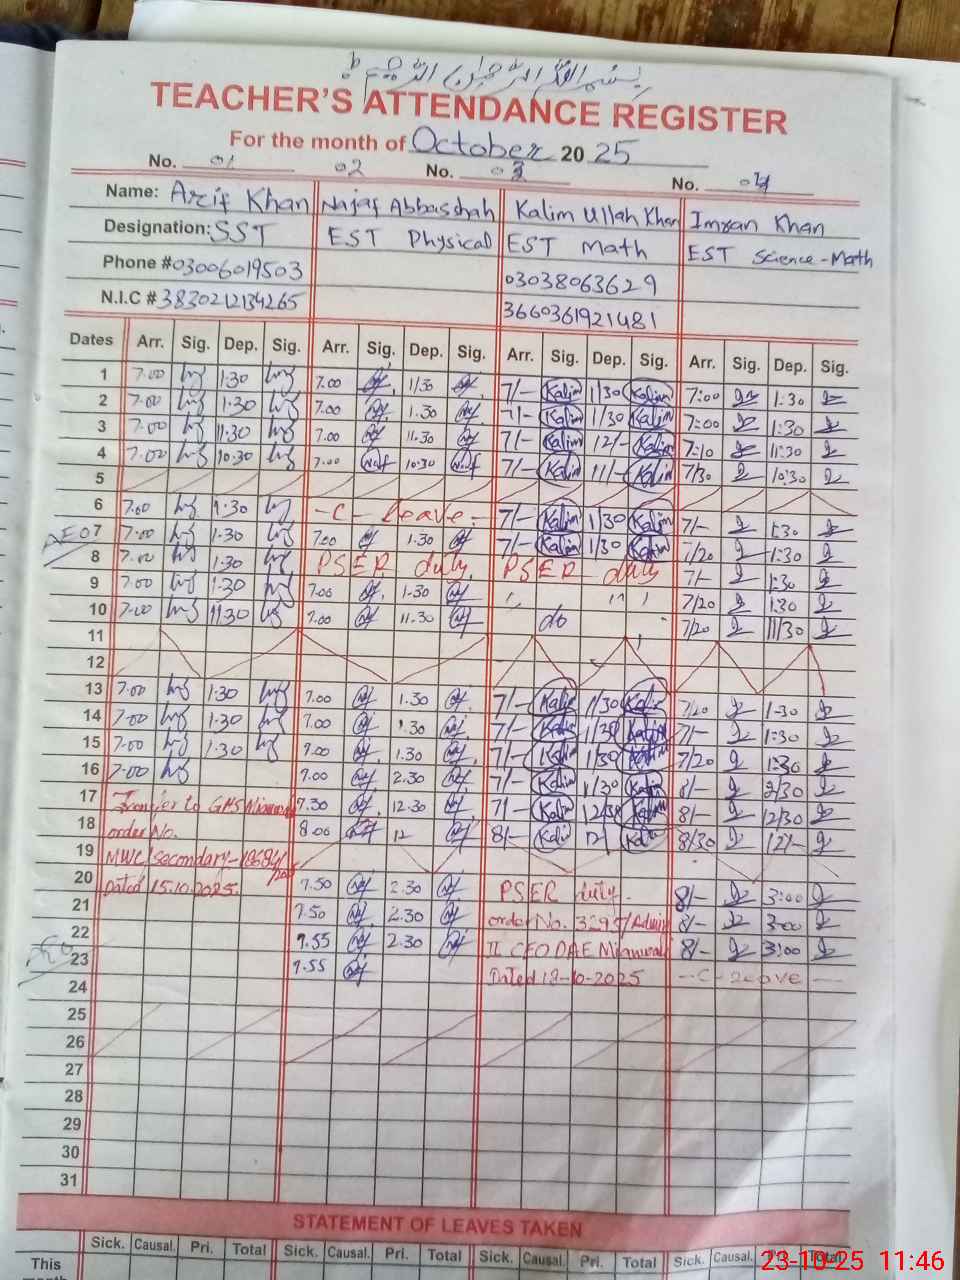 بسم اللہ الرحمن الرحیم
TEACHER'S ATTENDANCE REGISTER
For the month of October 2025
No. 01 02 No. 03 No. 04
Name: Arif Khan Najaf Abbas Shah Kalim Ullah Khan Imran Khan
Designation: SST EST Physical EST Math EST Science-Math
Phone #03006019503 03038063629
N.I.C # 3830212134265 3660361921481
Dates Arr. Sig. Dep. Sig. Arr. Sig. Dep. Sig. Arr. Sig. Dep. Sig. Arr. Sig. Dep. Sig.
1 7.00 1.30 7.00 1/30 7/- Kalim 1/30 Kalim 7:00 1:30
2 7.00 1.30 7.00 1.30 7/- Kalim 1/30 Kalim 7:00 1:30
3 7.00 11.30 7.00 11.30 7/- Kalim 12/- Kalim 7:10 11:30
4 7.00 10.30 7.00 10:30 7/- Kalim 11/- Kalim 7/30 10:30
5
6 7.00 1.30 -C- leave- 7/- Kalim 1/30 Kalim 7/- 1:30
7 7.00 1.30 7.00 1.30 7/- Kalim 1/30 Kalim 7/20 1:30
8 7.00 1.30 PSER duty PSER duty 7/- 1:30
9 7.00 1.30 7.00 1.30 7/20 1:30
10 7.00 11.30 7.00 11.30 do 7/20 11/30
11
12
13 7.00 1.30 7.00 1.30 7/- Kalim 1/30 Kalim 7/20 1.30
14 7.00 1.30 7.00 1.30 7/- Kalim 1/30 Kalim 7/- 1:30
15 7.00 1.30 7.00 1.30 7/- Kalim 1/30 Kalim 7/20 1:30
16 7.00 7.00 2.30 7/- Kalim 1/30 Kalim 8/- 2/30
17 Transfer to GHS 7.30 12.30 7/- Kalim 12/30 Kalim 8/- 12/30
18 order No. 8.00 12 8/- Kalim 12/ Kalim 8/30 12/-
19 MWL/secondary-
20 Dated 15.10.2025. 7.50 2.30 PSER duty. 8/- 3:00
21 7.50 2.30 order No. /Admin 8/- 3:00
22 7.55 2.30 II CEO DAE Mianwali 8/- 3:00
23 7.55 Dated 18-10-2025 -C-Leave-
24
25
26
27
28
29
30
31
STATEMENT OF LEAVES TAKEN
Sick. Causal. Pri. Total Sick. Causal. Pri. Total Sick. Causal. Pri. Total Sick. Causal. Pri. Total
This
month
23-10-25 11:46